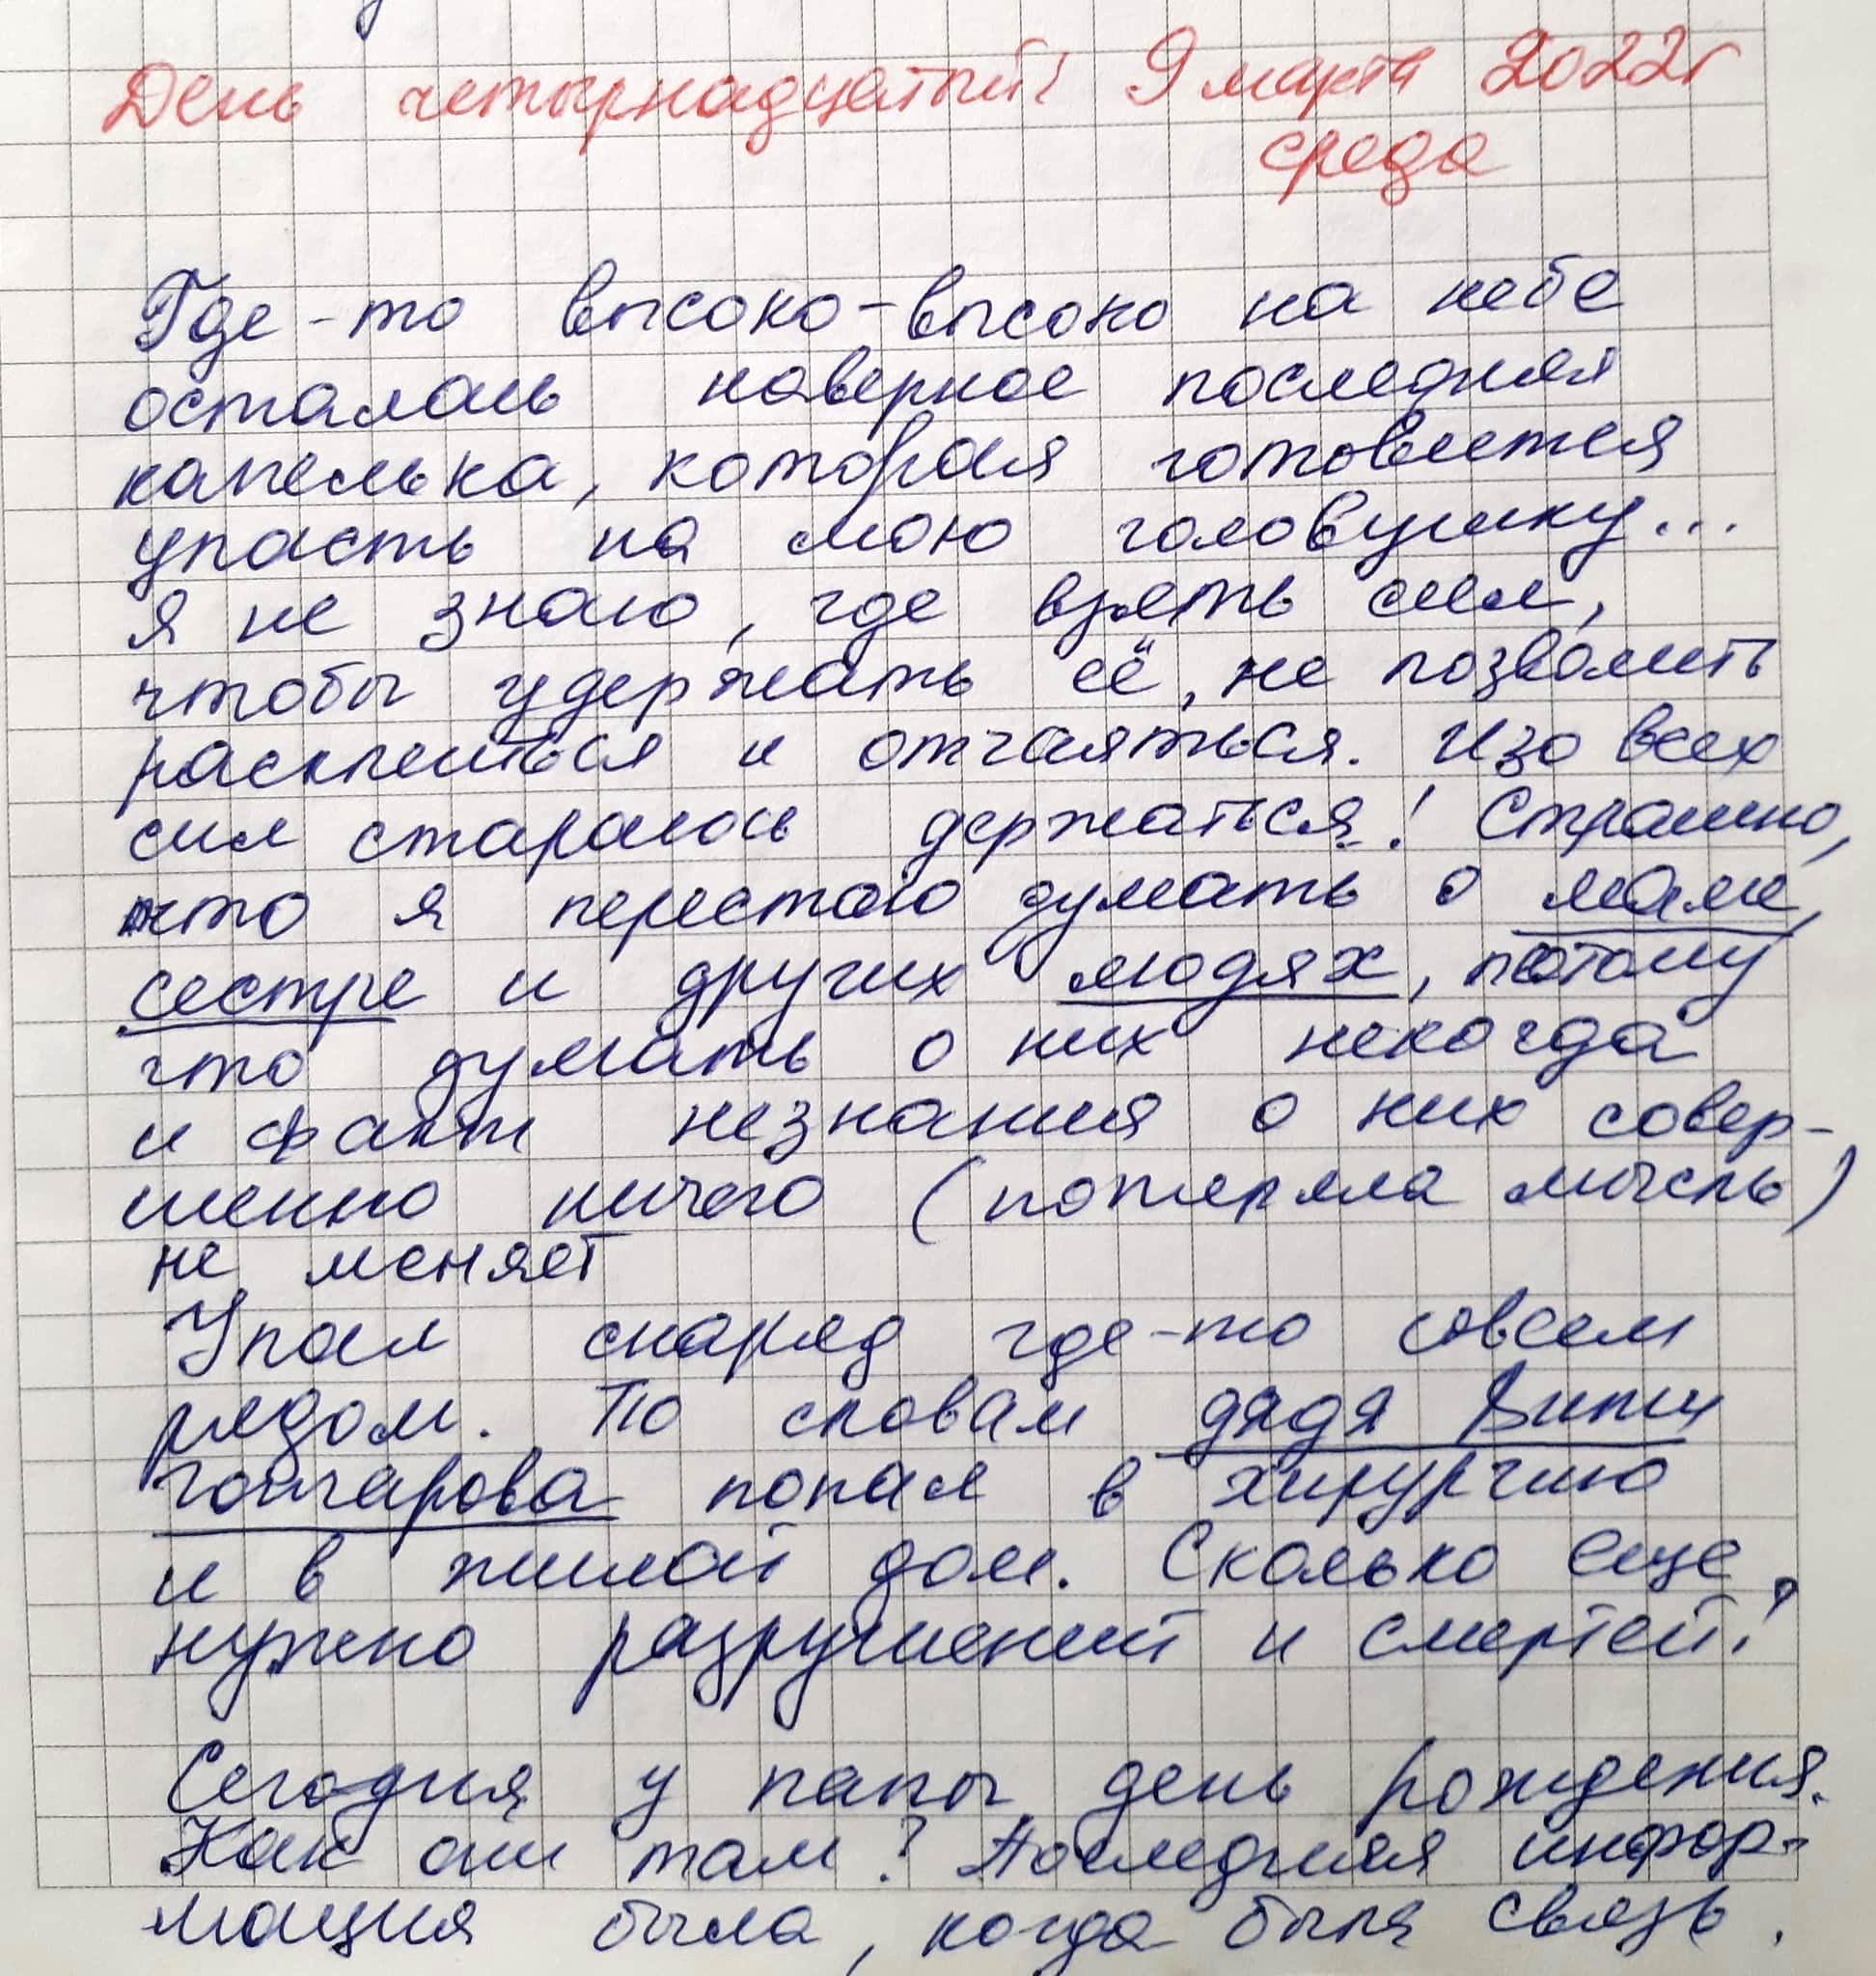 День четырнадцатый! 9 марта 2022г
среда
Где-то высоко-высоко на небе
осталась наверное последняя
капелька, которая готовится
упасть на мою головушку...
Я не знаю, где взять сил,
чтобы удержать её, не позволить
расклеиться и отчаяться. Изо всех
сил стараюсь держаться! Страшно,
что я перестаю думать о маме,
сестре и других людях, потому
что думать о них некогда
и факт незнания о них совер-
шенно ничего (потеряла мысль)
не меняет
Упал снаряд где-то совсем
рядом. По словам дядя Вити
гончарова попал в хирургию
и в жилой дом. Сколько еще
нужно разрушений и смертей?
Сегодня у папы день рождения.
Как они там? Последняя инфор-
мация была, когда была связь.